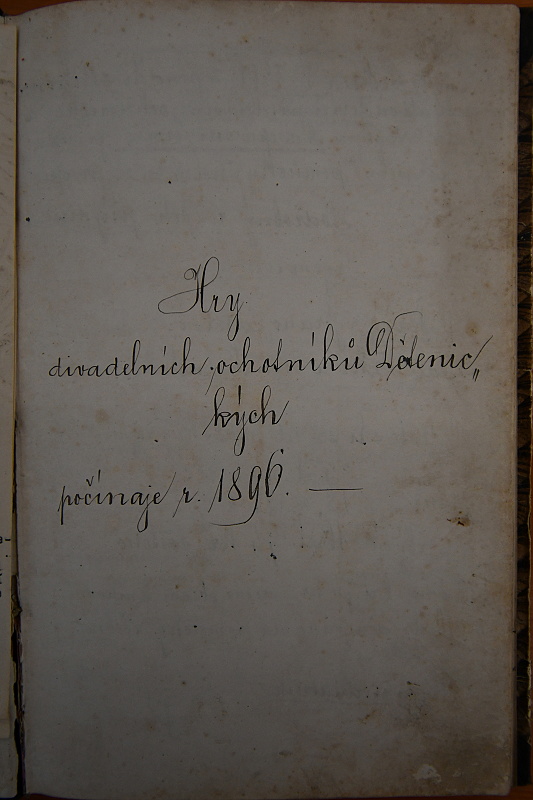 Hry
divadelních ochotníků Dětenic„
kých
počínaje r. 1896. —